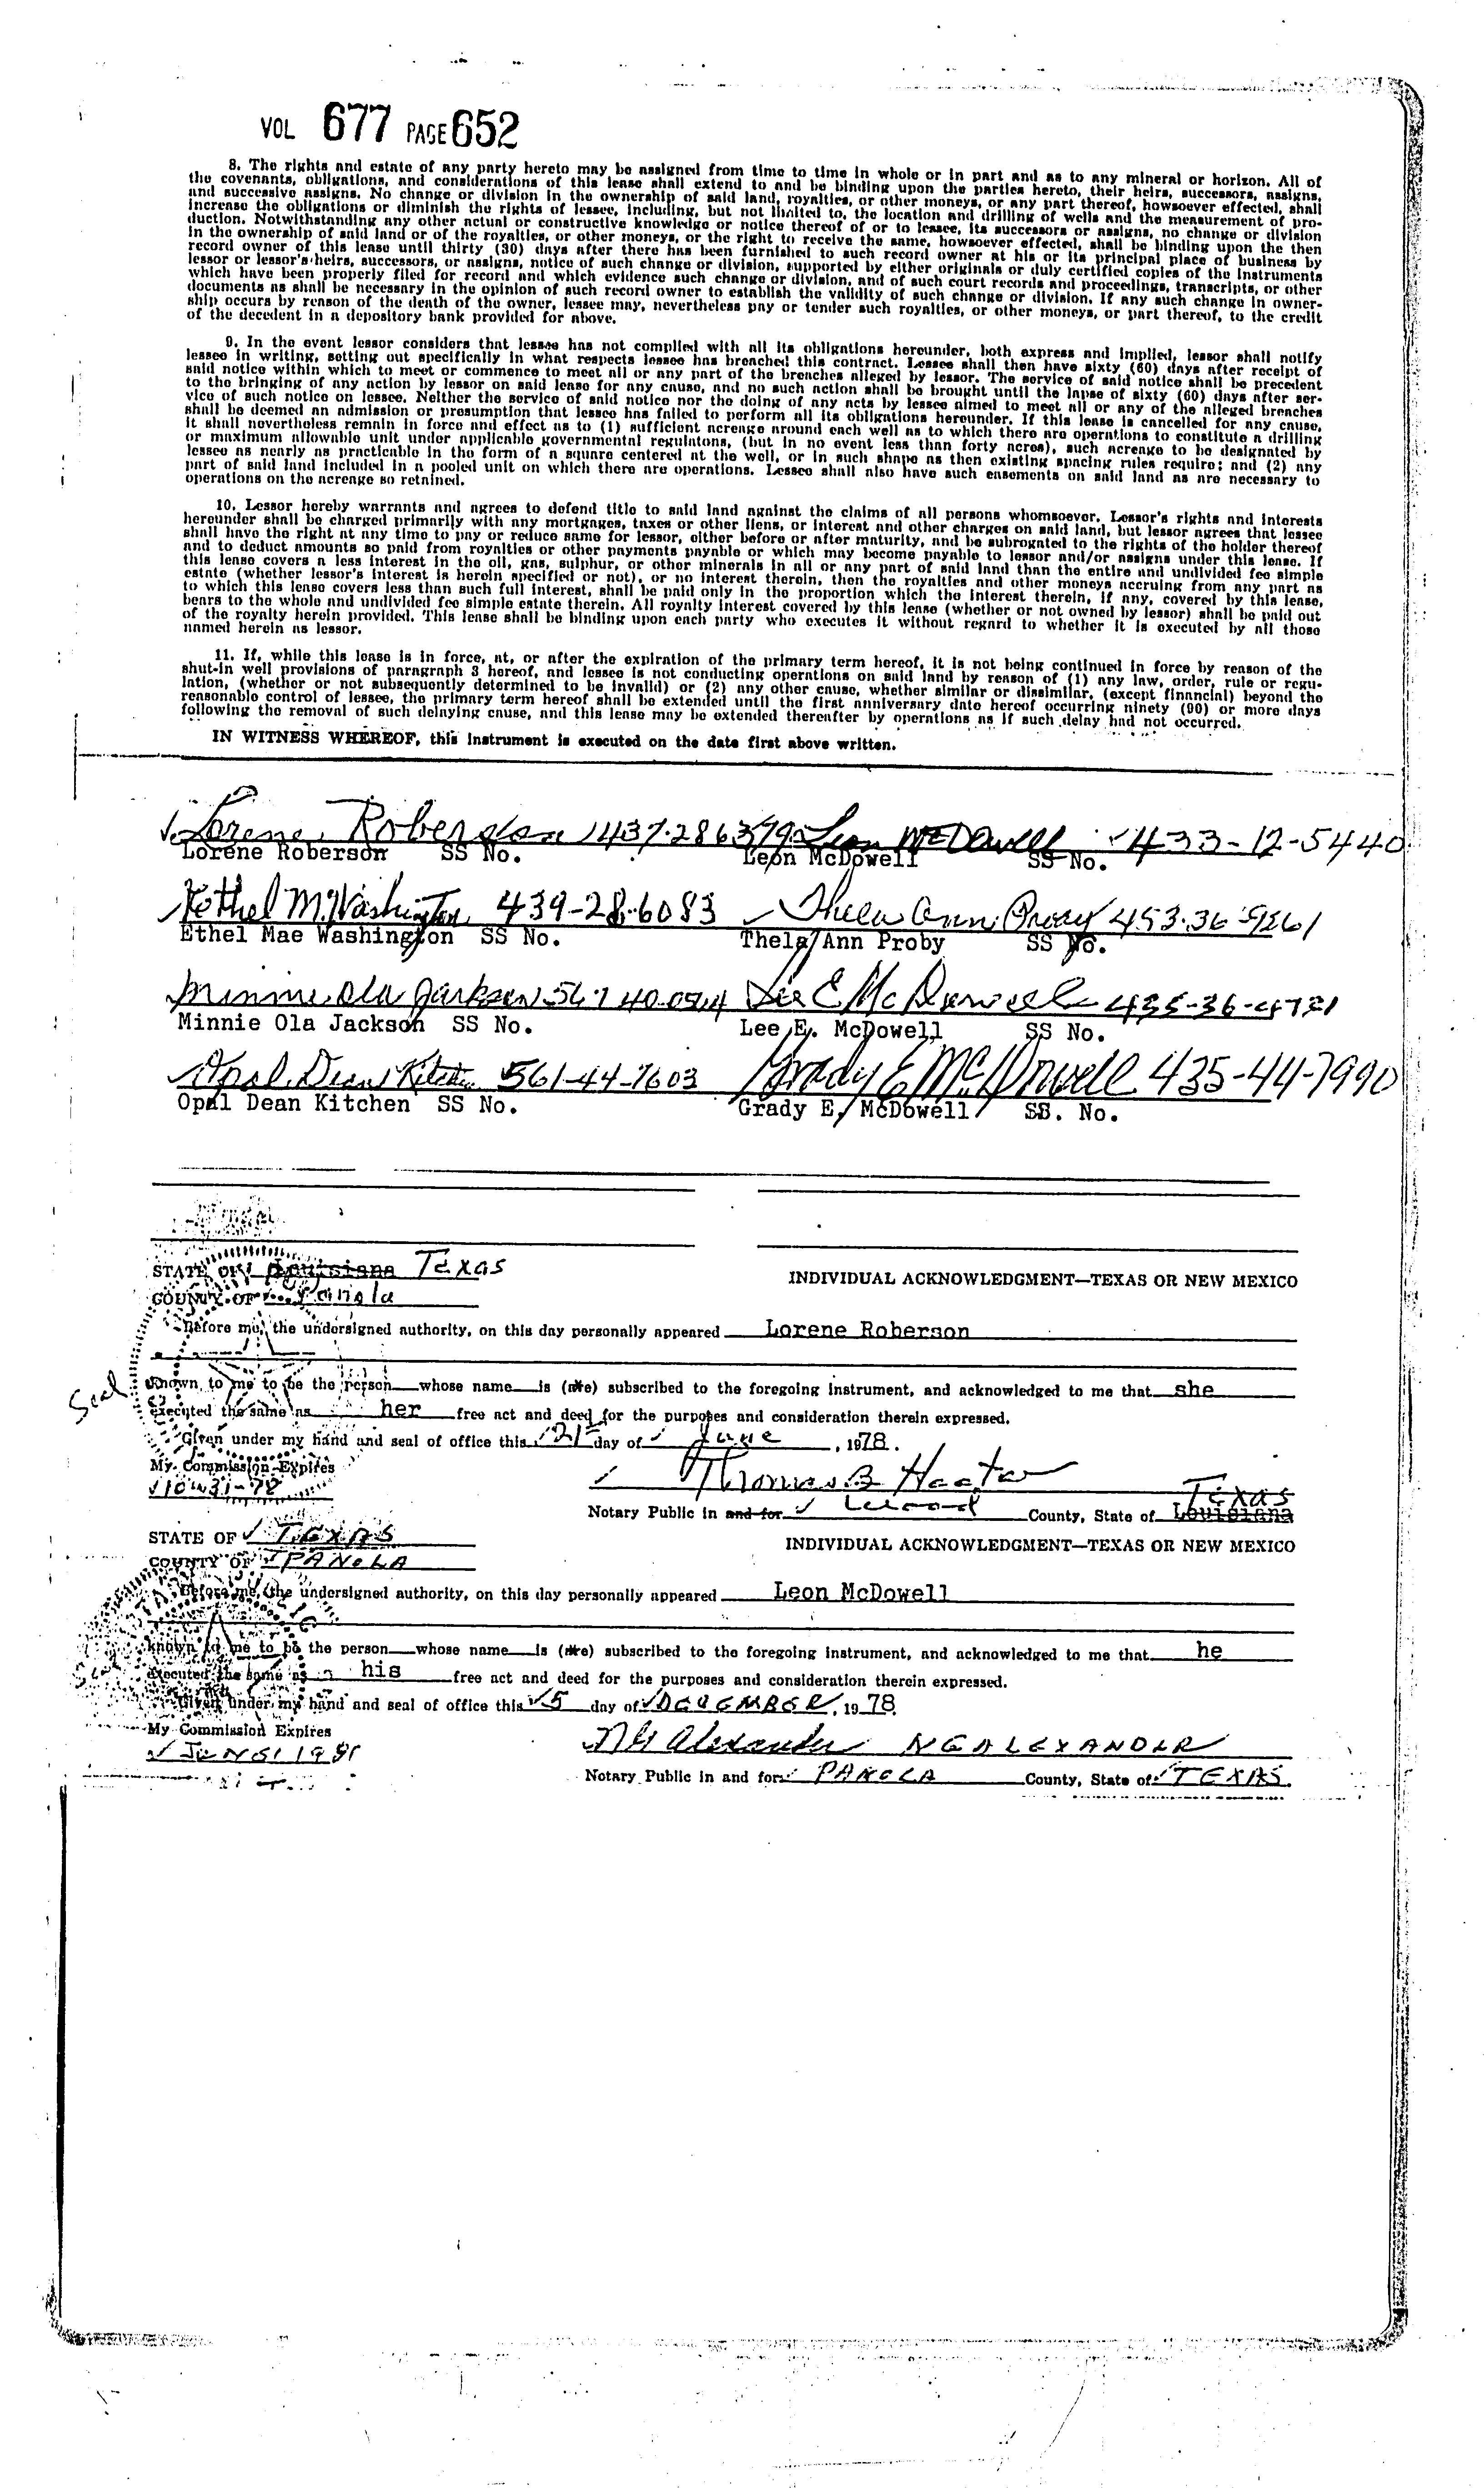 VOL 677 PAGE 652
8. The rights and estate of any party hereto may be assigned from time to time in whole or in part and as to any mineral or horizon. All of
the covenants, obligations, and considerations of this lease shall extend to and be binding upon the parties hereto, their heirs, successors, assigns,
and successive assigns. No change or division in the ownership of said land, royalties, or other moneys, or any part thereof, howsoever effected, shall
increase the obligations or diminish the rights of lessee, including, but not limited to, the location and drilling of wells and the measurement of pro-
duction. Notwithstanding any other actual or constructive knowledge or notice thereof of or to lessee, its successors or assigns, no change or division
in the ownership of said land or of the royalties, or other moneys, or the right to receive the same, howsoever effected, shall be binding upon the then
record owner of this lease until thirty (30) days after there has been furnished to such record owner at his or its principal place of business by
lessor or lessor's heirs, successors, or assigns, notice of such change or division, supported by either originals or duly certified copies of the instruments
which have been properly filed for record and which evidence such change or division, and of such court records and proceedings, transcripts, or other
documents as shall be necessary in the opinion of such record owner to establish the validity of such change or division. If any such change in owner-
ship occurs by reason of the death of the owner, lessee may, nevertheless pay or tender such royalties, or other moneys, or part thereof, to the credit
of the decedent in a depository bank provided for above.
9. In the event lessor considers that lessee has not complied with all its obligations hereunder, both express and implied, lessor shall notify
lessee in writing, setting out specifically in what respects lessee has breached this contract. Lessee shall then have sixty (60) days after receipt of
said notice within which to meet or commence to meet all or any part of the breaches alleged by lessor. The service of said notice shall be precedent
to the bringing of any action by lessor on said lease for any cause, and no such action shall be brought until the lapse of sixty (60) days after ser-
vice of such notice on lessee. Neither the service of said notice nor the doing of any acts by lessee aimed to meet all or any of the alleged breaches
shall be deemed an admission or presumption that lessee has failed to perform all its obligations hereunder. If this lease is cancelled for any cause,
it shall nevertheless remain in force and effect as to (1) sufficient acreage around each well as to which there are operations to constitute a drilling
or maximum allowable unit under applicable governmental regulatons, (but in no event less than forty acres), such acreage to be designated by
lessee as nearly as practicable in the form of a square centered at the well, or in such shape as then existing spacing rules require; and (2) any
part of said land included in a pooled unit on which there are operations. Lessee shall also have such easements on said land as are necessary to
operations on the acreage so retained.
10. Lessor hereby warrants and agrees to defend title to said land against the claims of all persons whomsoever. Lessor's rights and interests
hereunder shall be charged primarily with any mortgages, taxes or other liens, or interest and other charges on said land, but lessor agrees that lessee
shall have the right at any time to pay or reduce same for lessor, either before or after maturity, and be subrogated to the rights of the holder thereof
and to deduct amounts so paid from royalties or other payments payable or which may become payable to lessor and/or assigns under this lease. If
this lease covers a less interest in the oil, gas, sulphur, or other minerals in all or any part of said land than the entire and undivided fee simple
estate (whether lessor's interest is herein specified or not), or no interest therein, then the royalties and other moneys accruing from any part as
to which this lease covers less than such full interest, shall be paid only in the proportion which the interest therein, if any, covered by this lease,
bears to the whole and undivided fee simple estate therein. All royalty interest covered by this lease (whether or not owned by lessor) shall be paid out
of the royalty herein provided. This lease shall be binding upon each party who executes it without regard to whether it is executed by all those
named herein as lessor.
11. If, while this lease is in force, at, or after the expiration of the primary term hereof, it is not being continued in force by reason of the
shut-in well provisions of paragraph 3 hereof, and lessee is not conducting operations on said land by reason of (1) any law, order, rule or regu-
lation, (whether or not subsequently determined to be invalid) or (2) any other cause, whether similar or dissimilar, (except financial) beyond the
reasonable control of lessee, the primary term hereof shall be extended until the first anniversary date hereof occurring ninety (90) or more days
following the removal of such delaying cause, and this lease may be extended thereafter by operations as if such delay had not occurred.
IN WITNESS WHEREOF, this instrument is executed on the date first above written.
Lorene Roberson 437-286379 Leon McDowell 433-12-5440
Lorene Roberson SS No. Leon McDowell SS No.
Ethel M. Washington 439-28-6083 Thela Ann Proby
Ethel Mae Washington SS No. Thela Ann Proby SS No.
Minnie Ola Jackson Lee E McDowell
Minnie Ola Jackson SS No. Lee E. McDowell SS No.
Opal Dean Kitchen 561-44-7603 Grady E. McDowell 435-44-7990
Opal Dean Kitchen SS No. Grady E. McDowell SS. No.
STATE OF Louisiana Texas
INDIVIDUAL ACKNOWLEDGMENT—TEXAS OR NEW MEXICO
COUNTY OF Panola
Before me, the undersigned authority, on this day personally appeared Lorene Roberson
Seal
known to me to be the person whose name is (are) subscribed to the foregoing instrument, and acknowledged to me that she
executed the same as her free act and deed for the purposes and consideration therein expressed.
Given under my hand and seal of office this 21st day of June, 1978.
My Commission Expires
10-31-78
Thomas B
Notary Public in and for County, State of Louisiana Texas
STATE OF TEXAS
INDIVIDUAL ACKNOWLEDGMENT—TEXAS OR NEW MEXICO
COUNTY OF PANOLA
Before me, the undersigned authority, on this day personally appeared Leon McDowell
known to me to be the person whose name is (are) subscribed to the foregoing instrument, and acknowledged to me that he
executed the same as his free act and deed for the purposes and consideration therein expressed.
Given under my hand and seal of office this 5 day of DECEMBER, 1978.
My Commission Expires
NG Alexander NG ALEXANDER
Notary Public in and for PANOLA County, State of TEXAS.